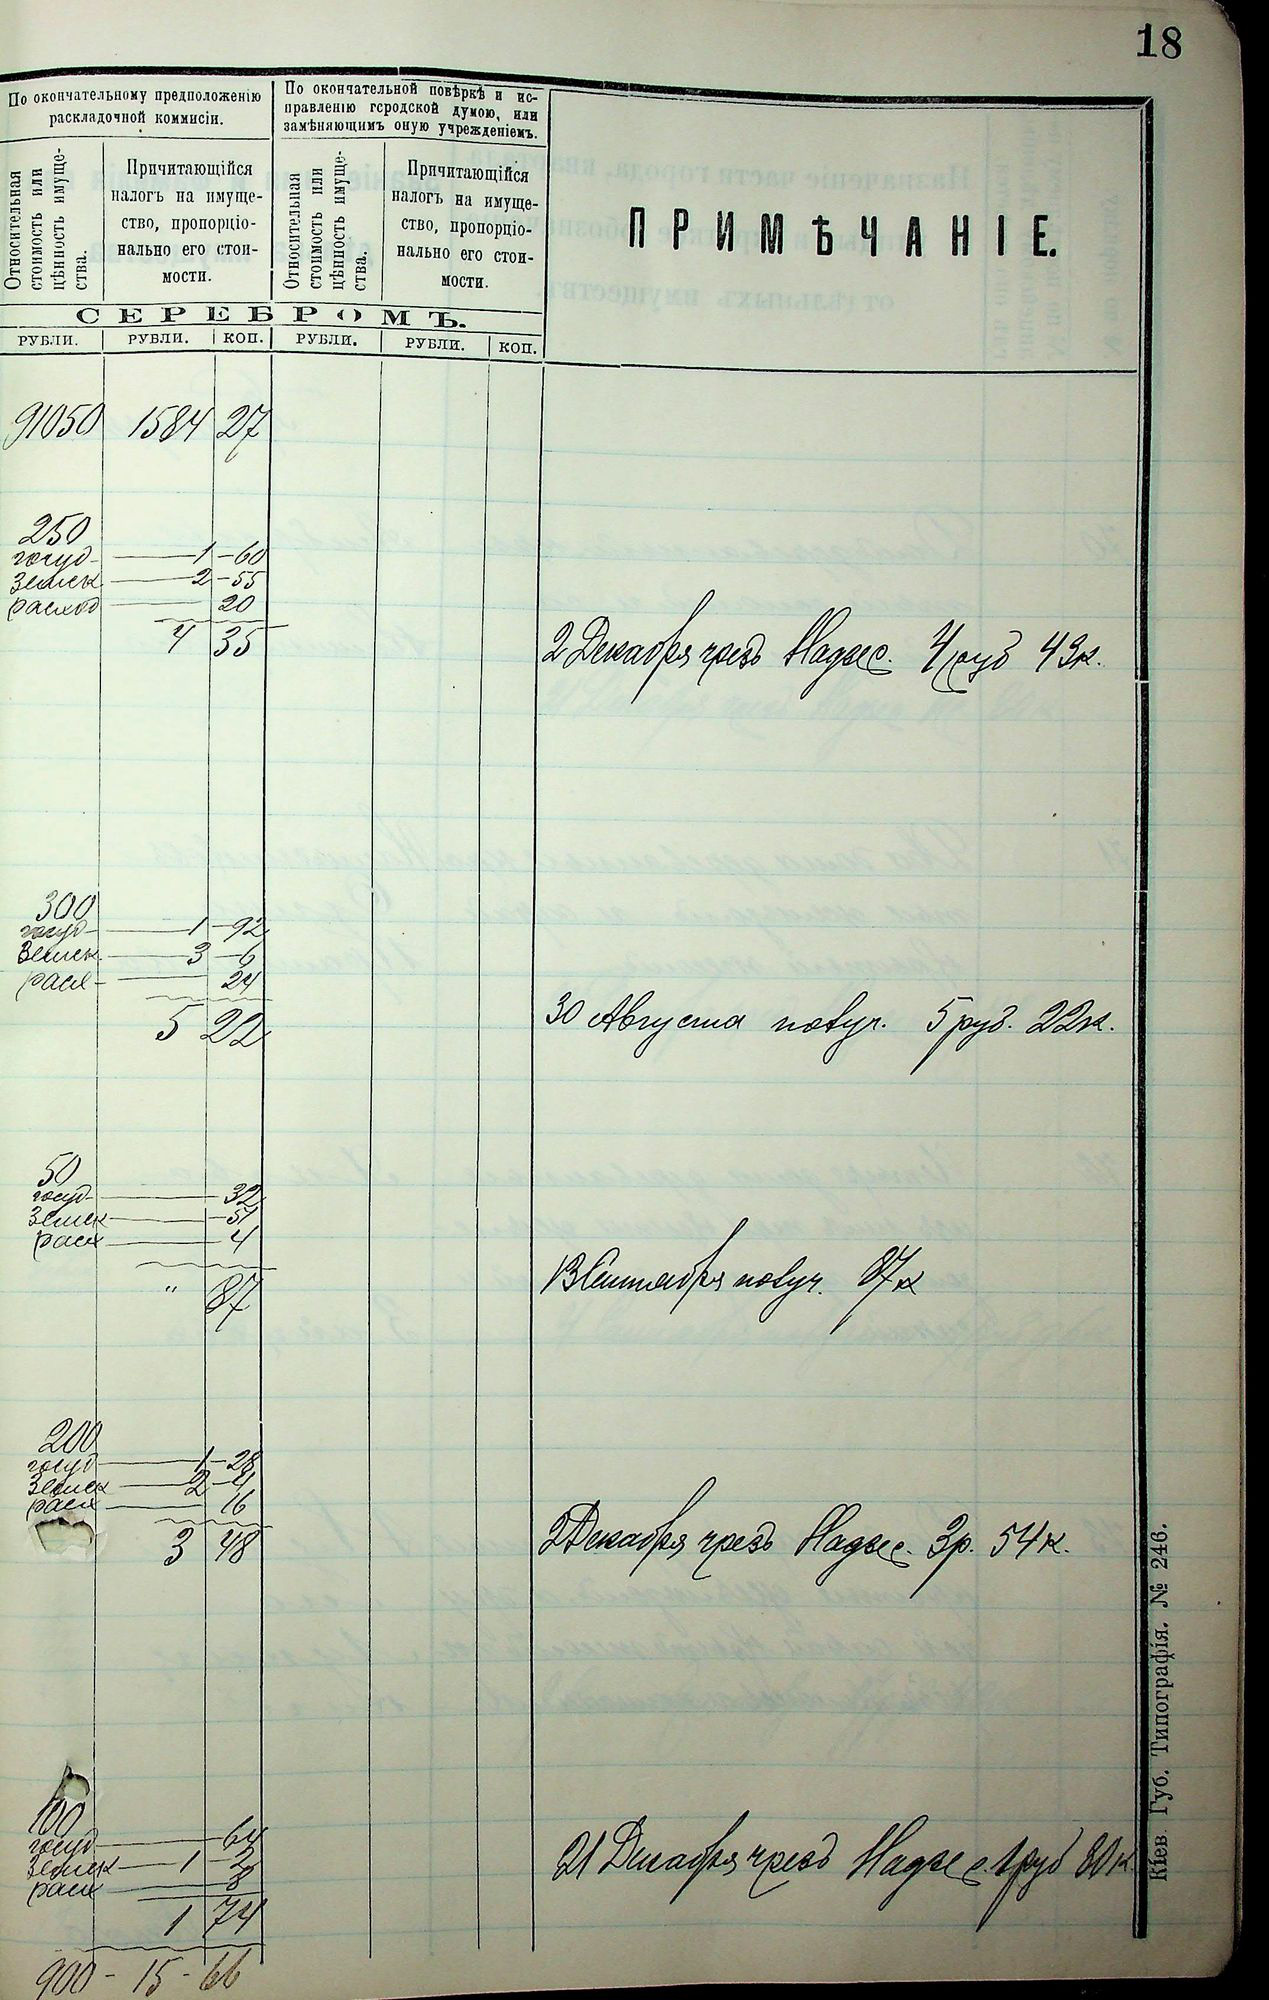 18
По окончательному предположенію
раскладочной коммисіи.
По окончательной повѣркѣ и ис-
правленію городской думою, или
замѣняющимъ оную учрежденіемъ.
Относительная
стоимость или
цѣнность имуще-
ства.
Причитающійся
налогъ на имуще-
ство, пропорціо-
нально его стои-
мости.
Относительная
стоимость или
цѣнность имуще-
ства.
Причитающійся
налогъ на имуще-
ство, пропорціо-
нально его стои-
мости.
ПРИМѢЧАНІЕ.
СЕРЕБРОМЪ.
РУБЛИ. РУБЛИ. КОП. РУБЛИ. РУБЛИ. КОП.
91050 1584 27
250
госуд — 1 — 60
Земск — 2 — 55
расход — 20
4 35
2 Декабря чрезъ Надзес. 4 руб 43к.
300
госуд — 1 — 92
Земск — 3 — 6
расх — 24
5 22
30 Августа получ. 5 руб. 22к.
50
госуд — 32
Земск — 51
расх — 4
" 87
13 Сентября получ. 87к
200
госуд — 1 — 28
Земск — 2 — 4
расх — 16
3 48
2 Декабря чрезъ Надзес. 3р. 54к.
100
госуд — 64
Земск — 1 — 2
расх — 8
1 74
21 Декабря чрезъ Надзес. 1руб 80к
900 — 15 — 66
Кіев. Губ. Типографія. № 246.